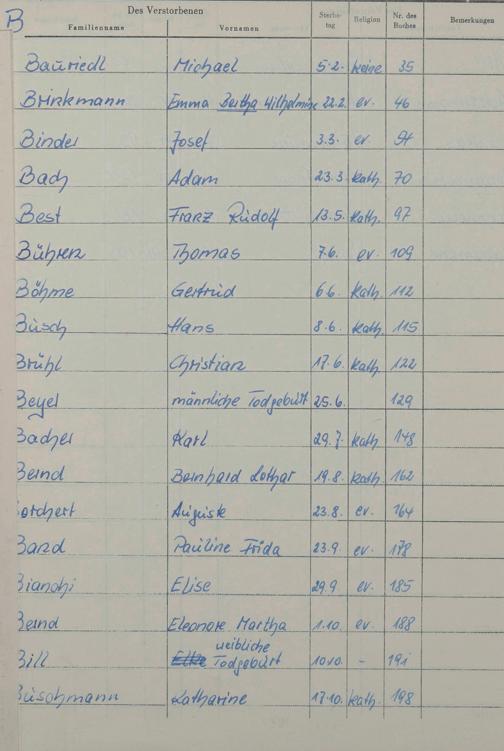 B
Des Verstorbenen
Familienname Vornamen Sterbe-tag Religion Nr. des Buches Bemerkungen
Bauriedl Michael 5.2. keine 35
Brinkmann Emma Bertha Wilhelmine 22.2. ev. 46
Binder Josef 3.3. ev.
Bach Adam 23.3. kath. 70
Best Franz Rudolf 13.5. kath. 97
Bühren Thomas 7.6. ev. 109
Böhme Gertrud 6.6. kath. 112
Busch Hans 8.6. kath. 115
Brühl Christian 17.6. kath. 122
Beyer männliche Todgeburt 25.6. 129
Bacher Karl 29.7. kath 148
Bernd Bernhard Lothar 19.8. kath 162
orchert Auguste 23.8. ev. 164
Band Pauline Frida 23.9. ev. 178
Bianchi Elise 29.9. ev. 185
Bernd Eleonore Martha 1.10. ev. 188
Bill weibliche Todgeburt 10.10. - 191
Buschmann Katharine 17.10. kath. 198